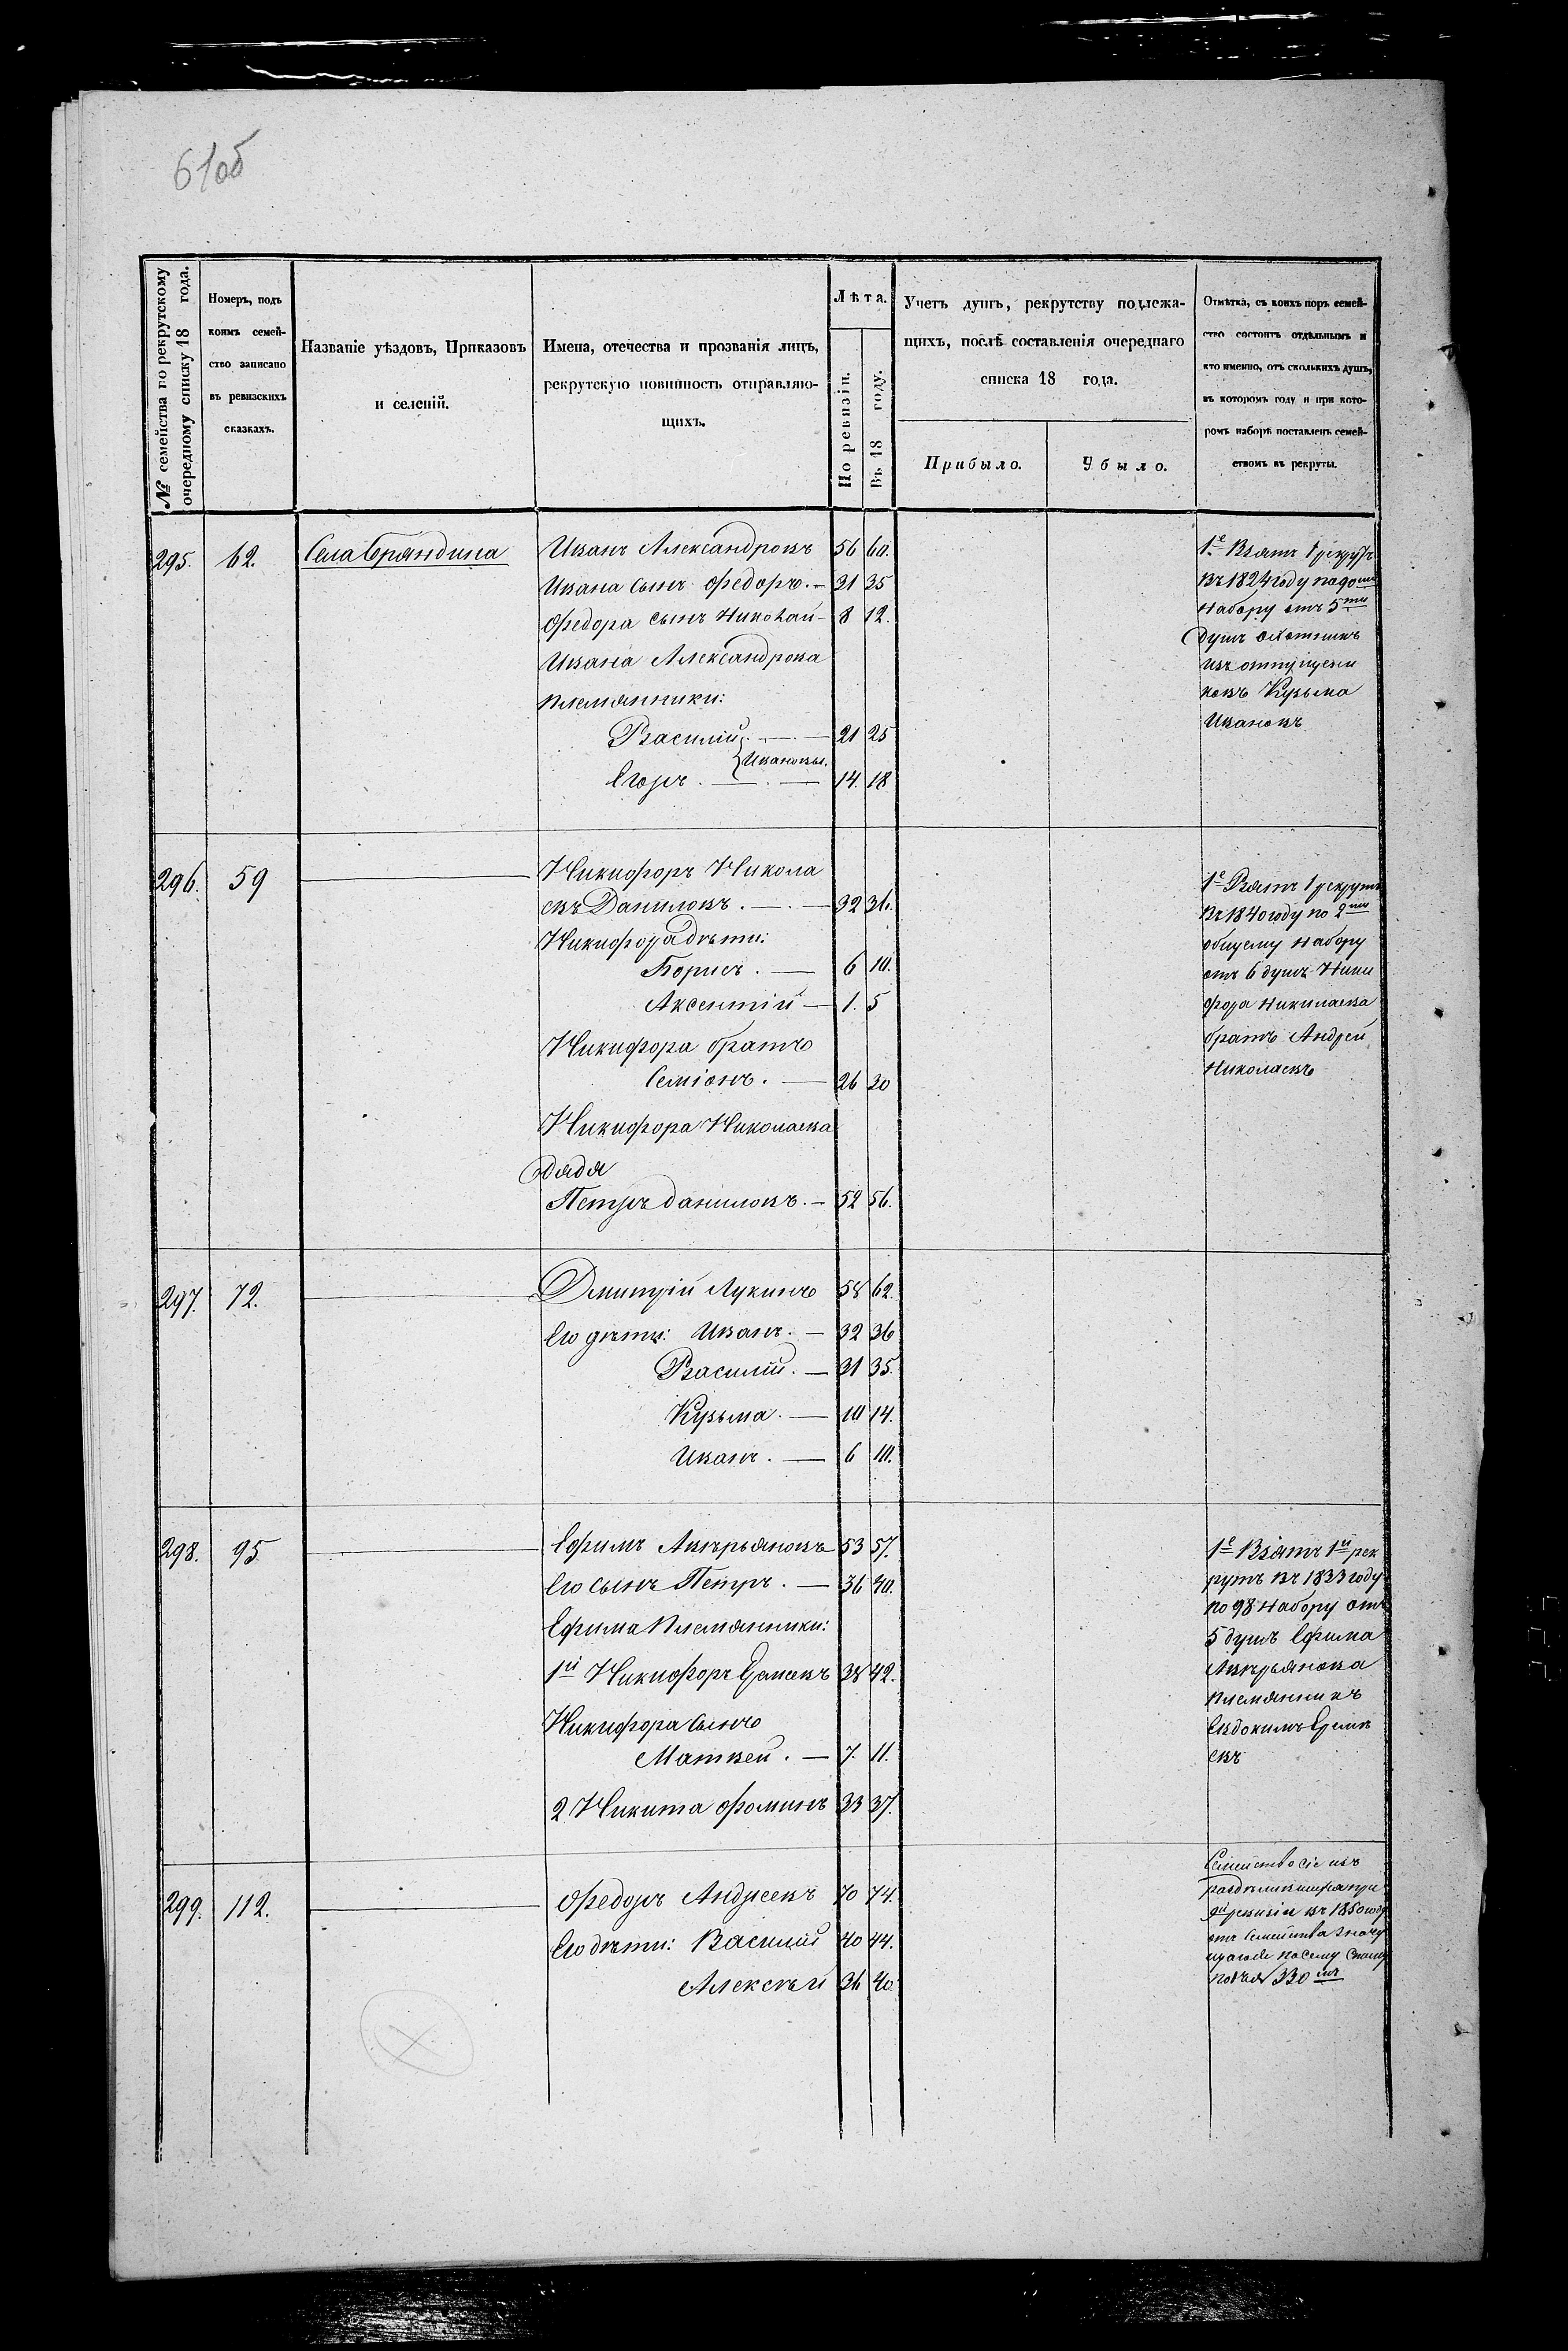 61об
№ семейства по рекрутскому
очередному списку 18 года.
Номеръ, подъ
коимъ семей-
ство записано
въ ревизскихъ
сказкахъ.
Названіе уѣздовъ, Приказовъ
и селеній.
Имена, отечества и прозванія лицъ,
рекрутскую повинность отправляю-
щихъ.
Лѣта.
По ревизіи.
Въ 18 году.
Учетъ душъ, рекрутству подлежа-
щихъ, послѣ составленія очереднаго
списка 18 года.
Прибыло.
Убыло.
Отмѣтка, съ коихъ поръ семей-
ство состоитъ отдѣльнымъ и
кто именно, отъ сколькихъ душъ,
въ которомъ году и при кото-
ромъ наборѣ поставленъ семей-
ствомъ въ рекруты.
295. 62. Села Бряндина Иванъ Александровъ 56 60.
Ивана сынъ Федоръ. — 31 35
Федора сынъ Николай — 8 12.
Ивана Александрова
племянники:
Василий. — 21 25
Ивановы.
Егоръ. — 14. 18
1е Взятъ 1 рекрутъ
въ 1824 году по 90му
набору отъ 5ти
душъ охотникъ
изъ отпущен
никовъ Кузьма
Ивановъ
296. 59 Никифоръ Никола
евъ Даниловъ. — 32 36.
Никифора дѣти:
Борисъ. — 6 10.
Аксентій — 1. 5
Никифора братъ
Семіонъ. — 26 30
Никифора Николаева
дядя
Петръ Даниловъ. — 52 56.
1е Взятъ 1 рекрутъ
въ 1840 году по 2му
общему набору
отъ 6 душъ Ники
фора Николаева
братъ Андрей
Николаевъ
297. 72. Дмитрій Лукинъ 58 62.
Его дѣти: Иванъ. — 32 36
Василій. — 31 35.
Кузьма. — 10 14.
Иванъ. — 6 10.
298. 95 Ефимъ Аверьяновъ 53 57.
Его сынъ Петръ. — 36 40.
Ефима племянники:
1й Никифоръ 38 42.
Никифора сынъ
Матвей. — 7. 11.
2 Никита Фоминъ 33 37.
1е Взятъ 1й рек
рутъ въ 1833 году
по 98 набору отъ
5 душъ Ефима
Аверьянова
племянникъ
Евдокимъ Ереме
евъ
299. 112. Федоръ Андреевъ 70 74.
Его дѣти: Василій 40 44.
Алексѣй 36 40.
Семейство сіе изъ
раздѣлившихся при
9й ревизіи въ 1850 году
отъ семейства значу
щагося по сему списку
330мъ